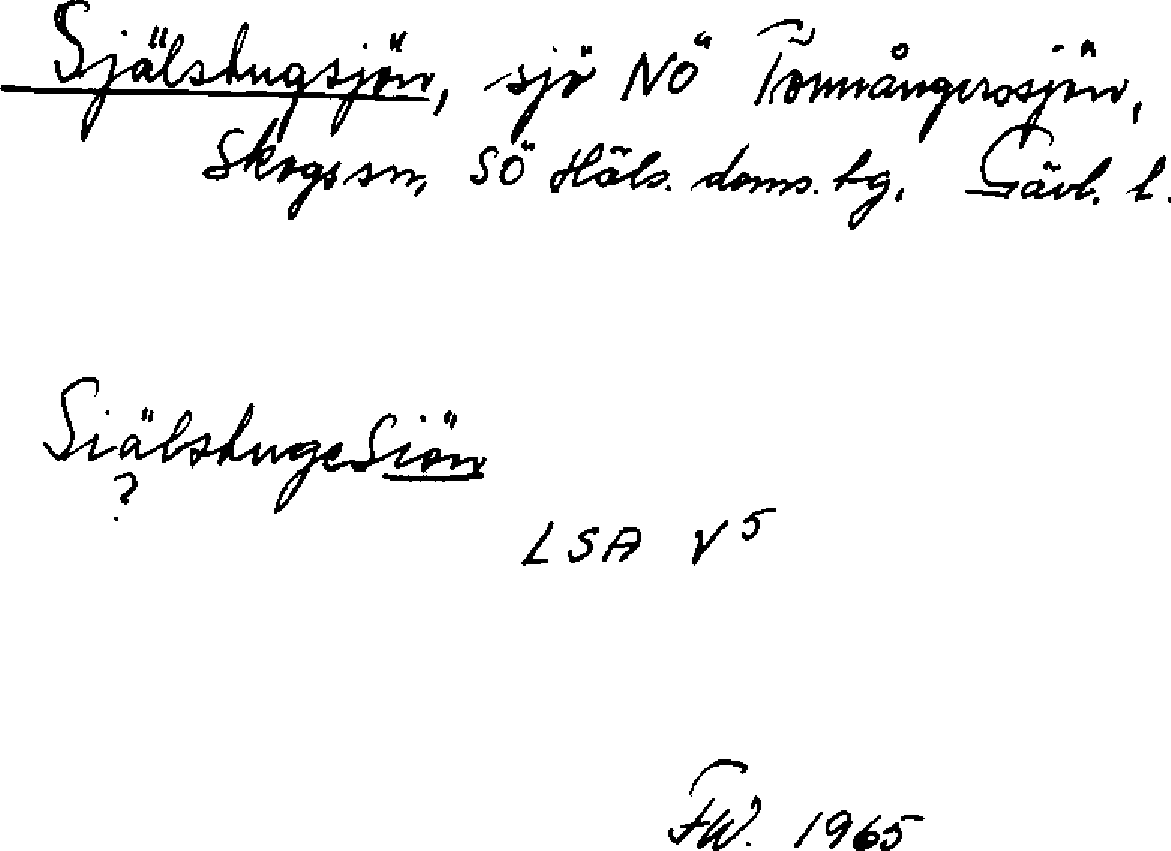 Själstugsjön, sjö NÖ Tönnångerssjön,
Skogs sn, SÖ Häls. doms. tg. Gävl. l.
SiälstugeSiön
?
LSA V5
FW. 1965